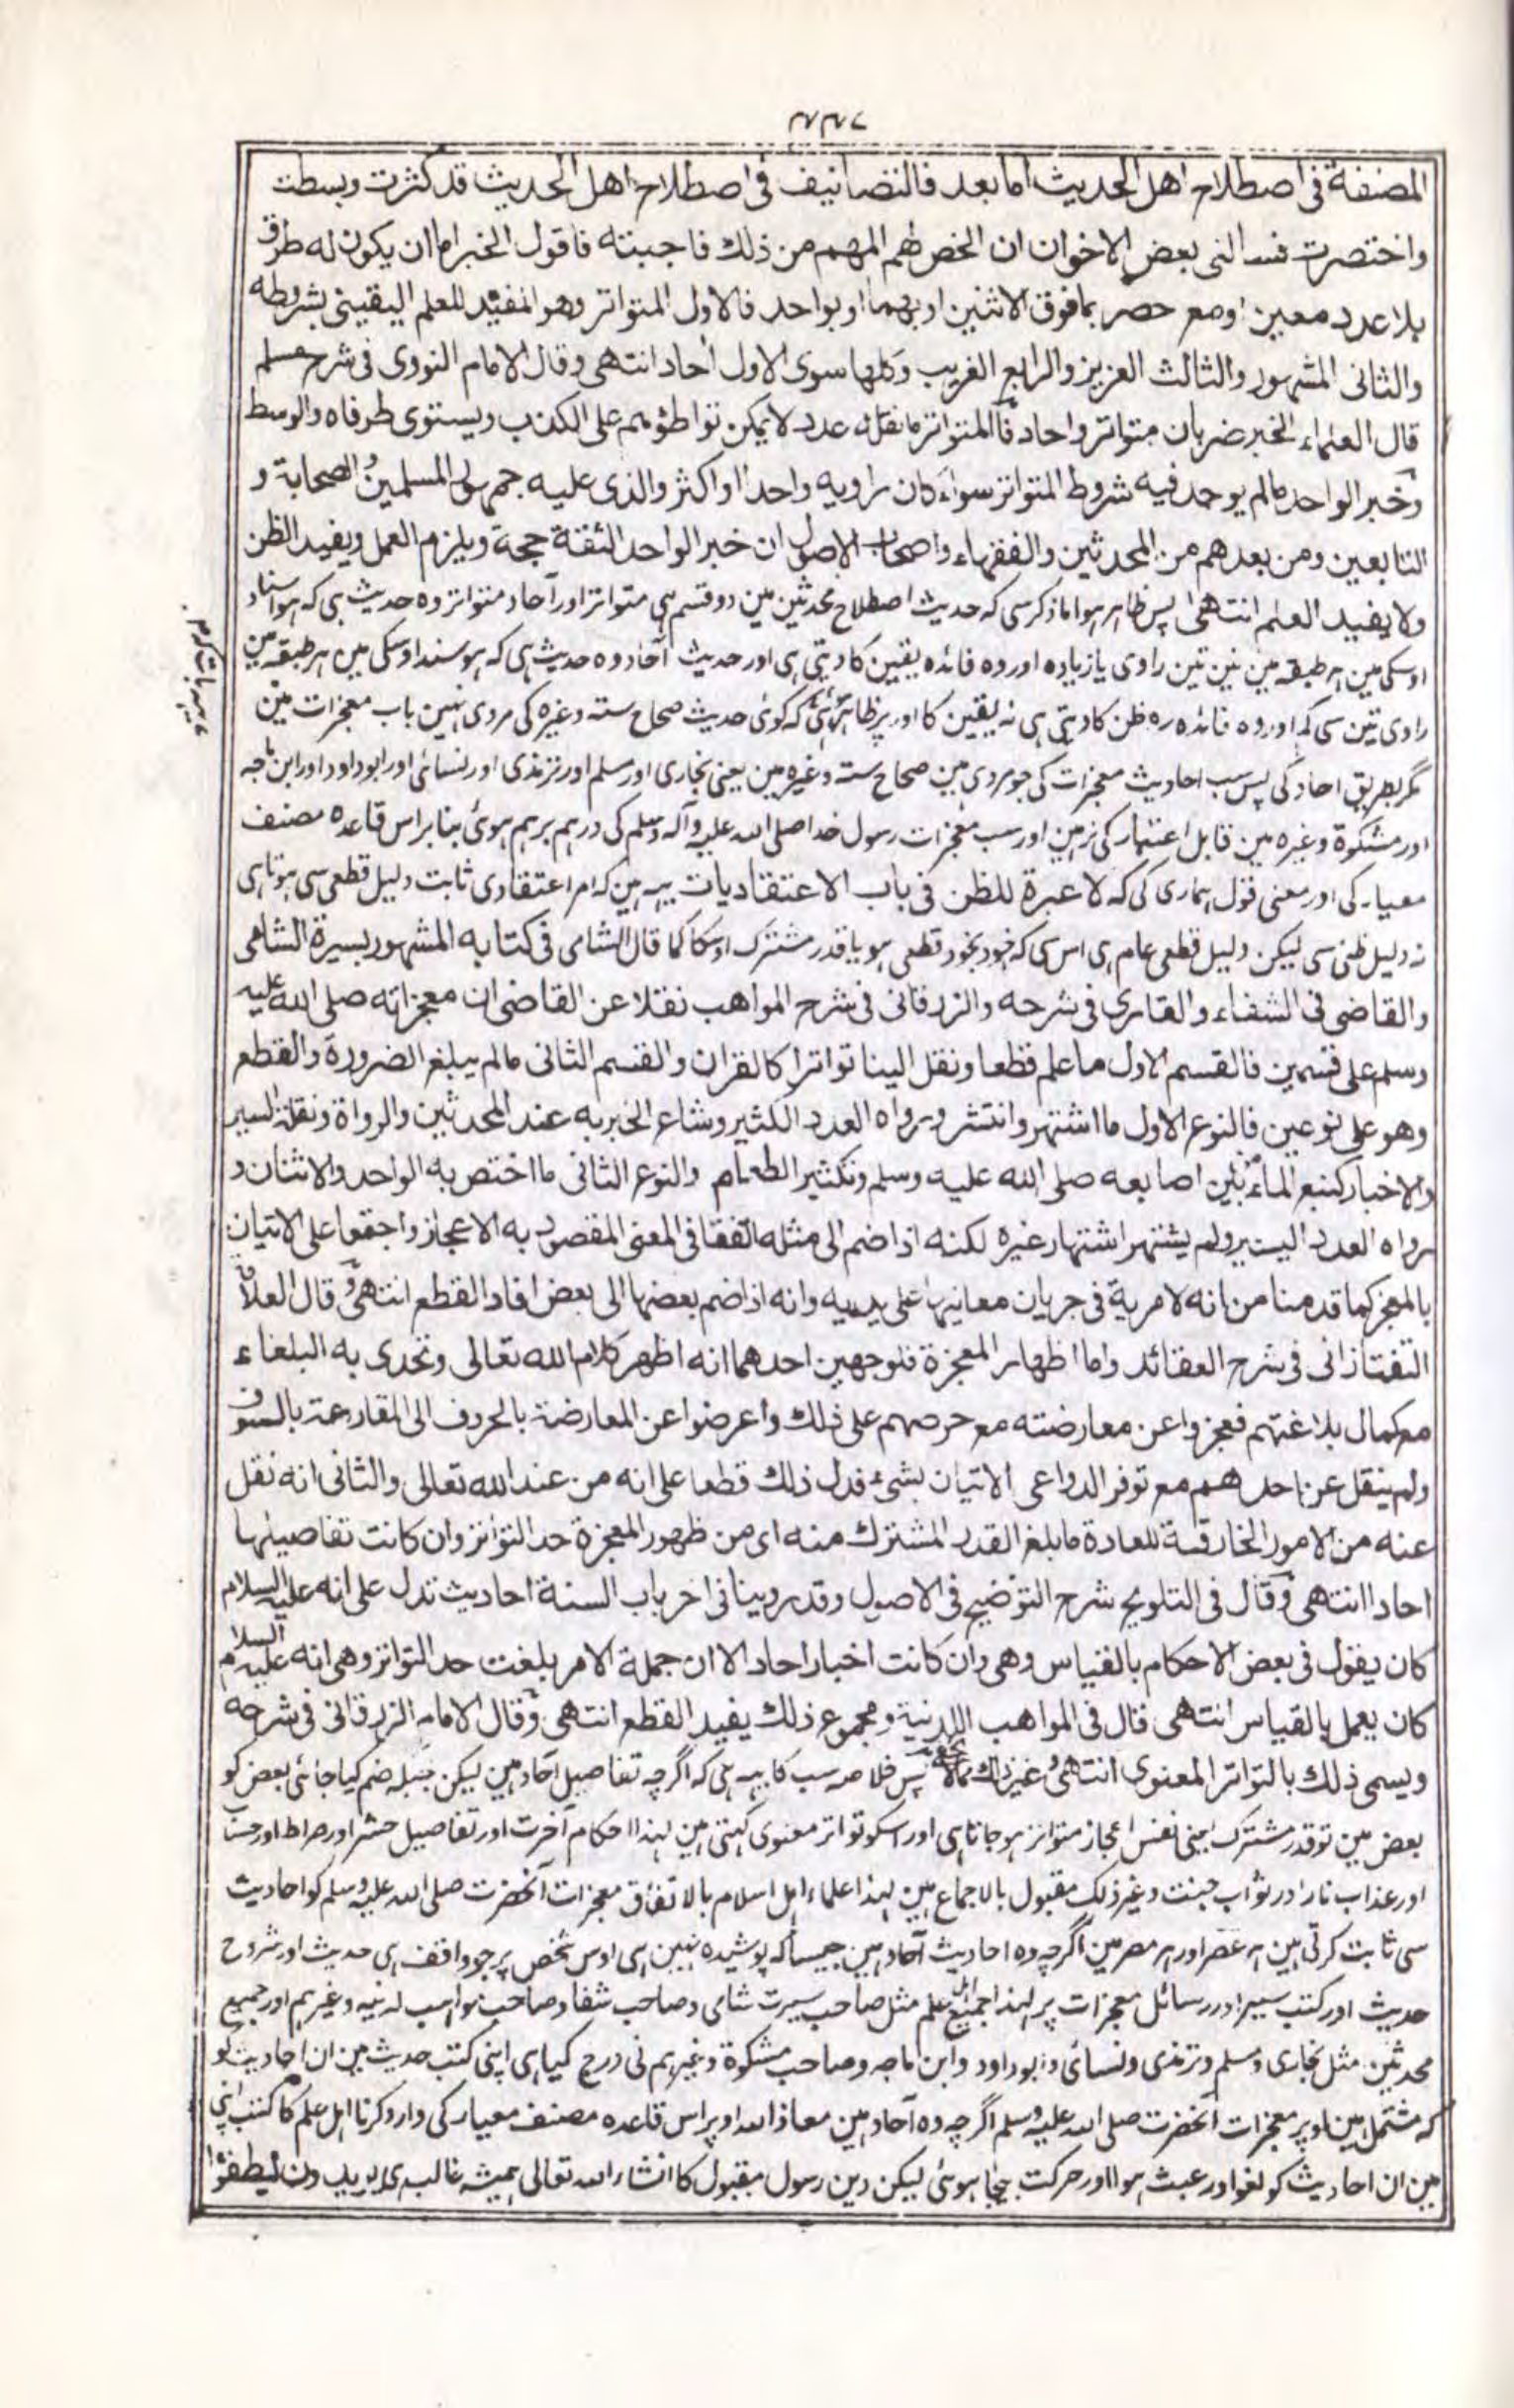 ۴۴۷
المصنفة فی اصطلاح اهل الحدیث اما بعد فالتصانیف فی اصطلاح اهل الحدیث قد کثرت وبسطت
واختصرت فسألنی بعض الاخوان ان الخص لهم المهم من ذلك فاجبته فاقول الخبر اما ان یکون له طرق
بلا عدد معین او مع حصر بما فوق الاثنین او بهما او بواحد فالاول المتواتر وهو المفید للعلم الیقینی بشروطه
والثانی المشهور والثالث العزیز والرابع الغریب وکلها سوی الاول احاد انتهی وقال الامام النووی فی شرح مسلم
قال العلماء الخبر ضربان متواتر واحاد فالمتواتر ما نقله عدد لا یمکن تواطؤهم علی الکذب ویستوی طرفاه والوسط
وخبر الواحد مالم یوجد فیه شروط المتواتر سواء کان راویه واحدا او اکثر والذی علیه جمهور المسلمین من الصحابة و
التابعین ومن بعدهم من المحدثین والفقهاء واصحاب الاصول ان خبر الواحد الثقة حجة ویلزم العمل ویفید الظن
ولا یفید العلم انتهی پس ظاہر ہوا ماذکر سی کہ حدیث اصطلاح محدثین مین دو قسم ہی متواتر اور آحاد متواتر وہ حدیث ہی کہ ہو اسناد
اوسکی مین ہر طبقہ مین تین تین راوی یا زیادہ اور وہ فائدہ یقین کا دیتی ہی اور حدیث آحاد وہ حدیث ہی کہ ہو سند اوسکی مین ہر طبقہ مین
راوی تین سی کم اور وہ فائدہ ظن کا دیتی ہی نہ یقین کا اور پر ظاہر ہی کہ کوئی حدیث صحاح ستہ وغیرہ کی مروی نہین باب معجزات مین
مگر بطریق احاد کی پس سب احادیث معجزات کی جو مروی ہین صحاح ستہ وغیرہ مین یعنی بخاری اور مسلم اور ترمذی اور نسائی اور ابوداود اور ابن ماجہ
اور مشکوة وغیرہ مین قابل اعتبار کی نرہین اور سب معجزات رسول خدا صلی اللہ علیہ وآلہ وسلم کی درہم برہم ہوئی بنابر اس قاعدہ مصنف
معیار کی اور معنی قول ہماری کی کہ لا عبرة للظن فی باب الاعتقادیات یہ ہین کہ امر اعتقادی ثابت دلیل قطعی سی ہوتا ہی
نہ دلیل ظنی سی لیکن دلیل قطعی عام ہی اس سی کہ خود بخود قطعی ہو یا قدر مشترک اوسکا کما قال الشامی فی کتابه المشهور بسیرة الشامی
والقاضی فی الشفاء والقاری فی شرحه والزرقانی فی شرح المواهب نقلا عن القاضی ان معجزاته صلی الله علیه
وسلم علی قسمین فالقسم الاول ما علم قطعا ونقل الینا تواترا کالقران والقسم الثانی مالم یبلغ الضرورة والقطع
وهو علی نوعین فالنوع الاول ما اشتهر وانتشر ورواه العدد الکثیر وشاع الخبر به عند المحدثین والرواة ونقلة السیر
والاخبار کنبع الماء من بین اصابعه صلی الله علیه وسلم وتکثیر الطعام والنوع الثانی ما اختص به الواحد والاثنان و
رواه العدد الیسیر ولم یشتهر اشتهار غیره لکنه اذا ضم الی مثله اتفقا فی المعنی المقصود به الاعجاز واجتمعوا علی الاتیان
بالمعجز کما قدمنا من انه لا مریة فی جریان معانیها علی یدیه وانه اذا ضم بعضها الی بعض افاد القطع انتهی وقال العلامة
التفتازانی فی شرح العقائد واما اظهار المعجزة فلوجهین احدهما انه اظهر کلام الله تعالی وتحدی به البلغاء
مع کمال بلاغتهم فعجزوا عن معارضته مع حرصهم علی ذلك واعرضوا عن المعارضة بالحروف الی المقارعة بالسیوف
ولم ینقل عن احدهم مع توفر الدواعی الاتیان بشیء فدل ذلك قطعا علی انه من عند الله تعالی والثانی انه نقل
عنه من الامور الخارقة للعادة ما بلغ القدر المشترك منه ای من ظهور المعجزة حد التواتر وان کانت تفاصیلها
احادا انتهی وقال فی التلویح شرح التوضیح فی الاصول وقد روینا فی اخر باب السنة احادیث تدل علی انه علیه السلام
کان یقول فی بعض الاحکام بالقیاس وهی وان کانت اخبار احاد الا ان جملة الامر بلغت حد التواتر وهی انه علیه السلام
کان یعمل بالقیاس انتهی قال فی المواهب اللدنیة ومجموع ذلك یفید القطع انتهی وقال الامام الزرقانی فی شرحه
ویسمی ذلك بالتواتر المعنوی انتهی وغیر ذلك پس خلاصہ سب کا یہہ ہی کہ اگرچہ تفاصیل آحاد ہین لیکن جبکہ ضم کیا جائی بعض کو
بعض مین تو قدر مشترک یعنی نفس اعجاز متواتر ہو جاتا ہی اور اسکو تواتر معنوی کہتی ہین لہذا احکام آخرت اور تفاصیل حشر اور صراط اور حساب
اور عذاب نار اور ثواب جنت وغیر ذلک مقبول بالاجماع ہین لہذا علماء اہل اسلام بالاتفاق معجزات آنحضرت صلی اللہ علیہ وسلم کو احادیث
سی ثابت کرتی ہین ہر عصر اور ہر مصر مین اگرچہ وہ احادیث آحاد ہین جیسا کہ پوشیدہ نہین ہی اوس شخص پر جو واقف ہی حدیث اور شروح
حدیث اور کتب سیر اور رسائل معجزات پر لہذا جمیع اہل علم مثل صاحب سیرت شامی وصاحب شفا وصاحب مواہب لدنیہ وغیرہم اور جمیع
محدثین مثل بخاری ومسلم وترمذی ونسائی وابوداود وابن ماجہ وصاحب مشکوة وغیرہم نی درج کیا ہی اپنی کتب حدیث مین ان احادیث کو
کہ مشتمل ہین اوپر معجزات آنحضرت صلی اللہ علیہ وسلم اگرچہ وہ آحاد ہین معاذ اللہ اوپر اس قاعدہ مصنف معیار کی وارد کرنا اہل علم کا کتب اپنی
مین ان احادیث کو لغو اور عبث ہوا اور حرکت بیجا ہوئی لیکن دین رسول مقبول کا انشاء اللہ تعالی ہمیشہ غالب ہی یریدون لیطفؤا